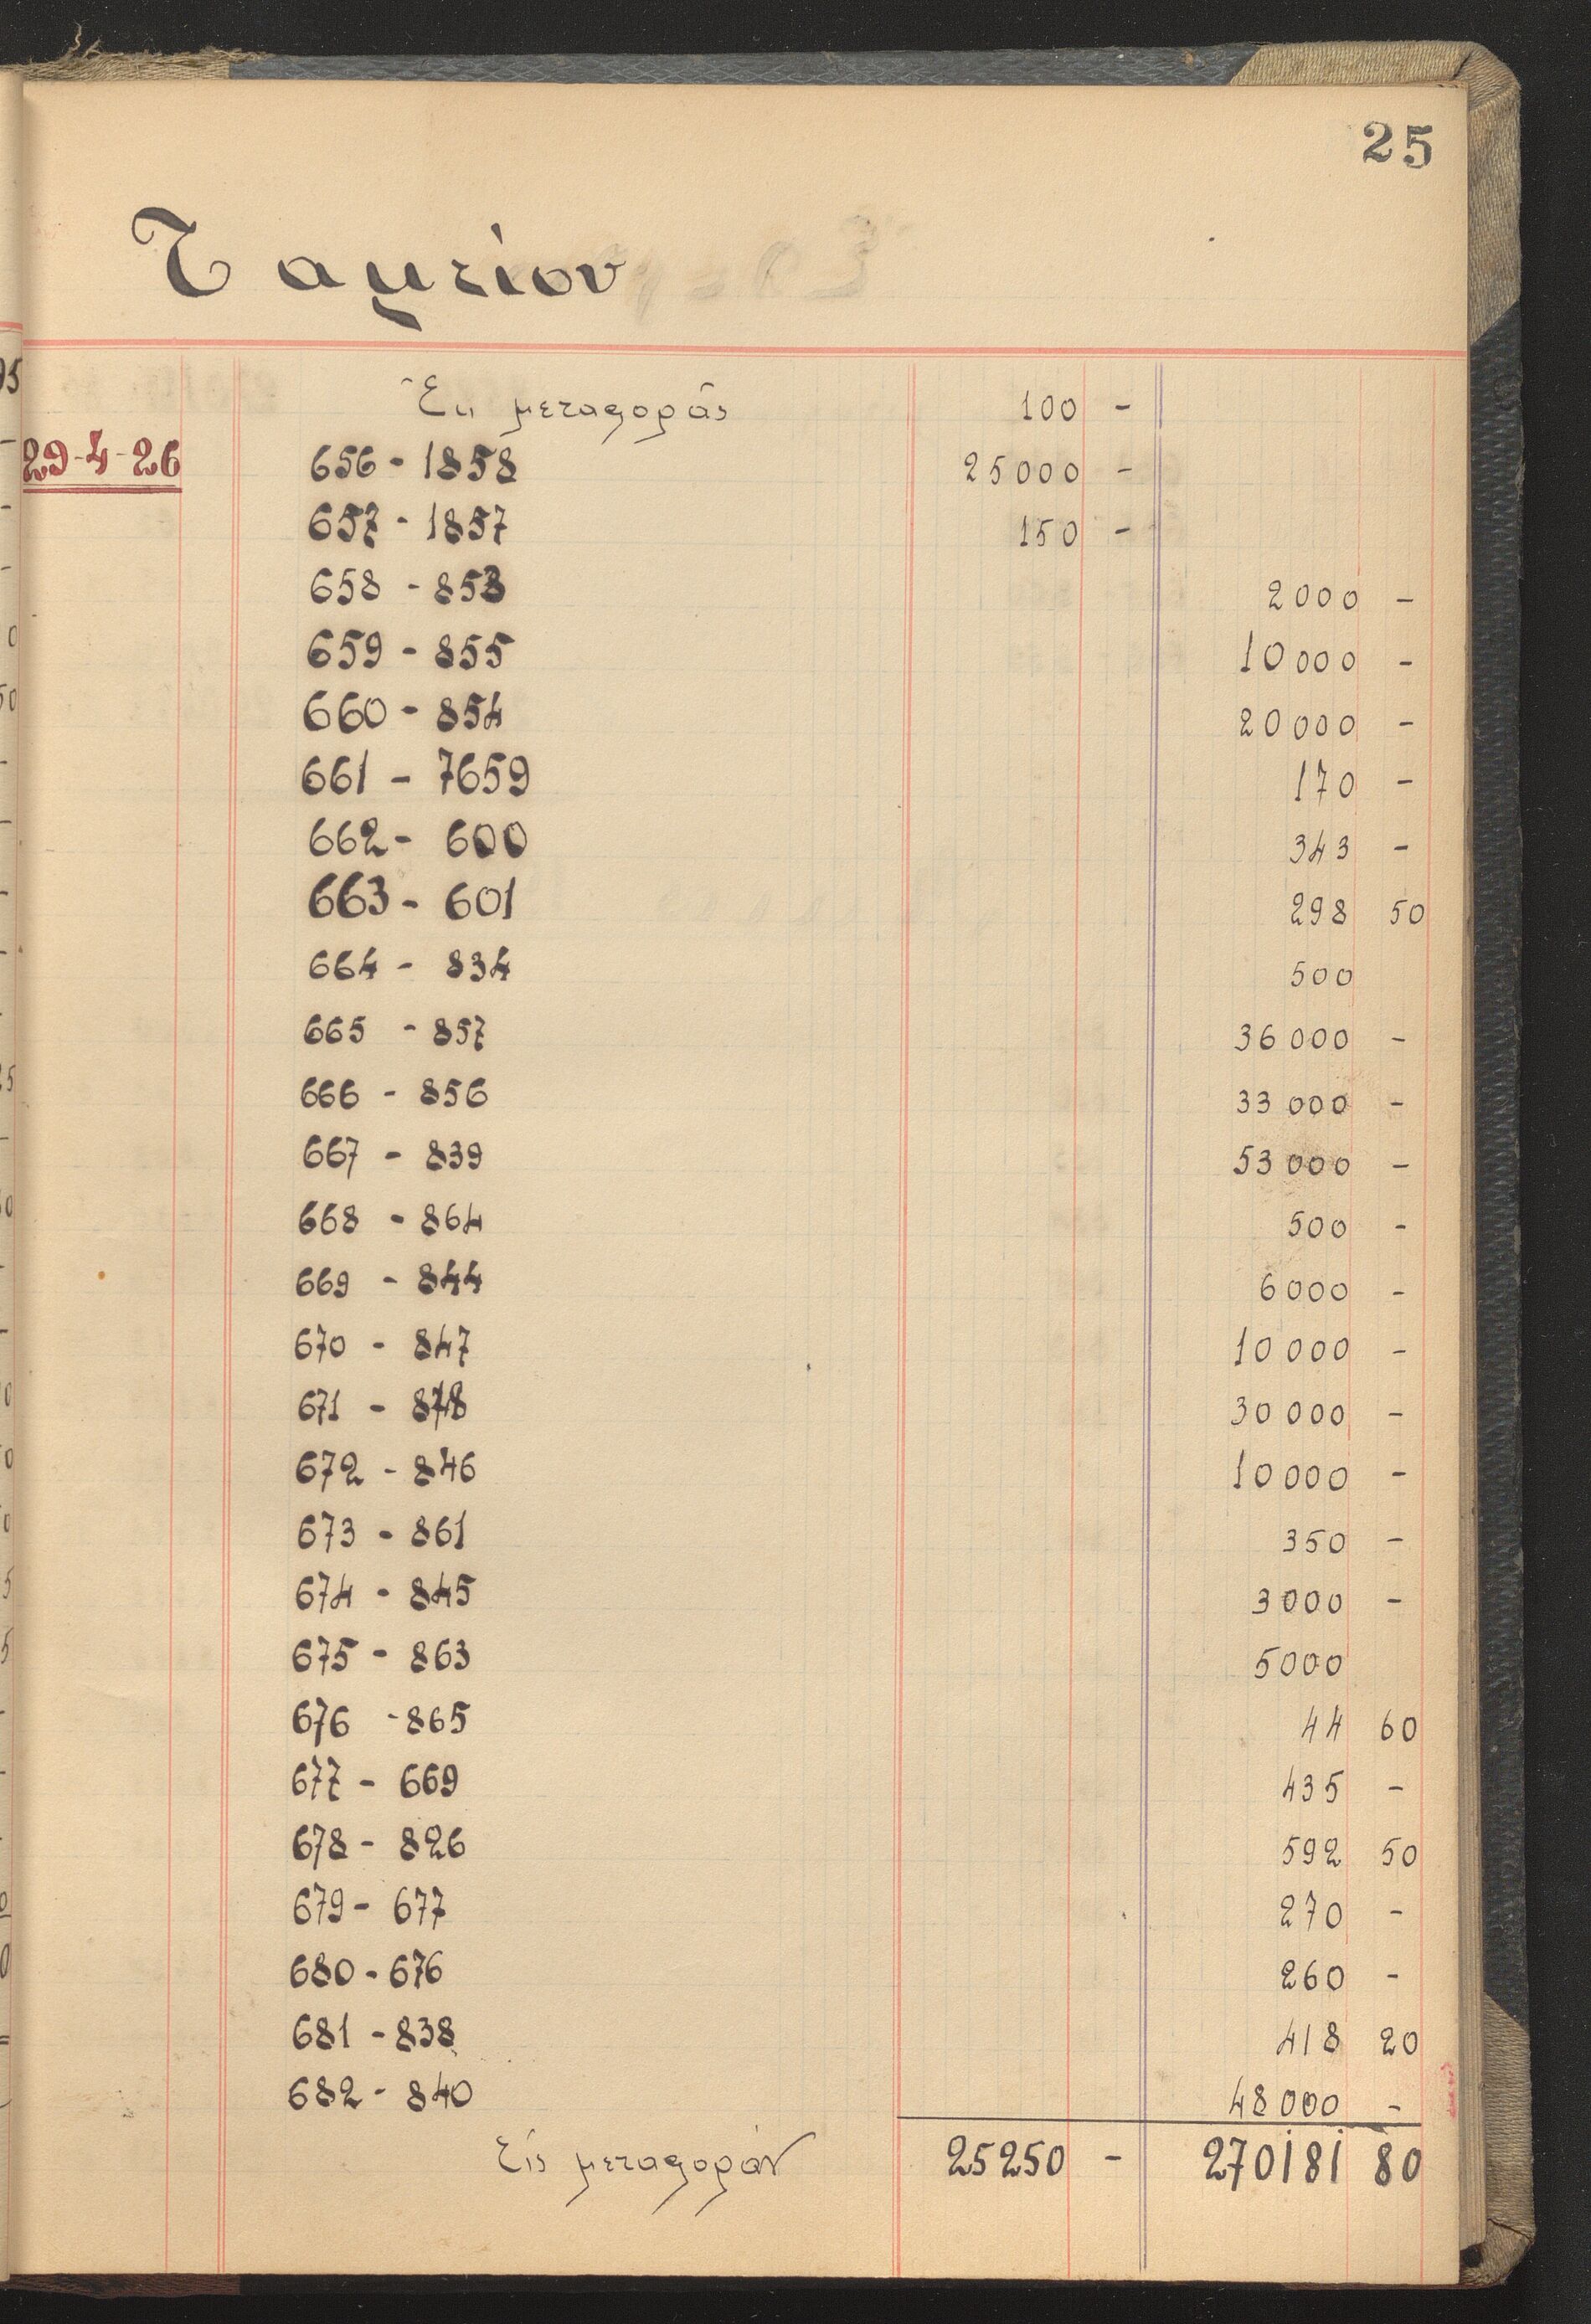 25
Ταμείον
Εκ μεταφοράς 100 -
29-4-26 656 - 1858 25000 -
657 - 1857 150 -
658 - 853 2000 -
659 - 855 10000 -
660 - 854 20000 -
661 - 7659 170 -
662 - 600 343 -
663 - 601 298 50
664 - 834 500
665 - 857 36000 -
666 - 856 33000 -
667 - 839 53000 -
668 - 864 500 -
669 - 844 6000 -
670 - 847 10000 -
671 - 848 30000 -
672 - 846 10000 -
673 - 861 350 -
674 - 845 3000 -
675 - 863 5000
676 - 865 44 60
677 - 669 435 -
678 - 826 592 50
679 - 677 270 -
680 - 676 260 -
681 - 838 418 20
682 - 840 48000 -
Εις μεταφοράν 25250 - 270181 80